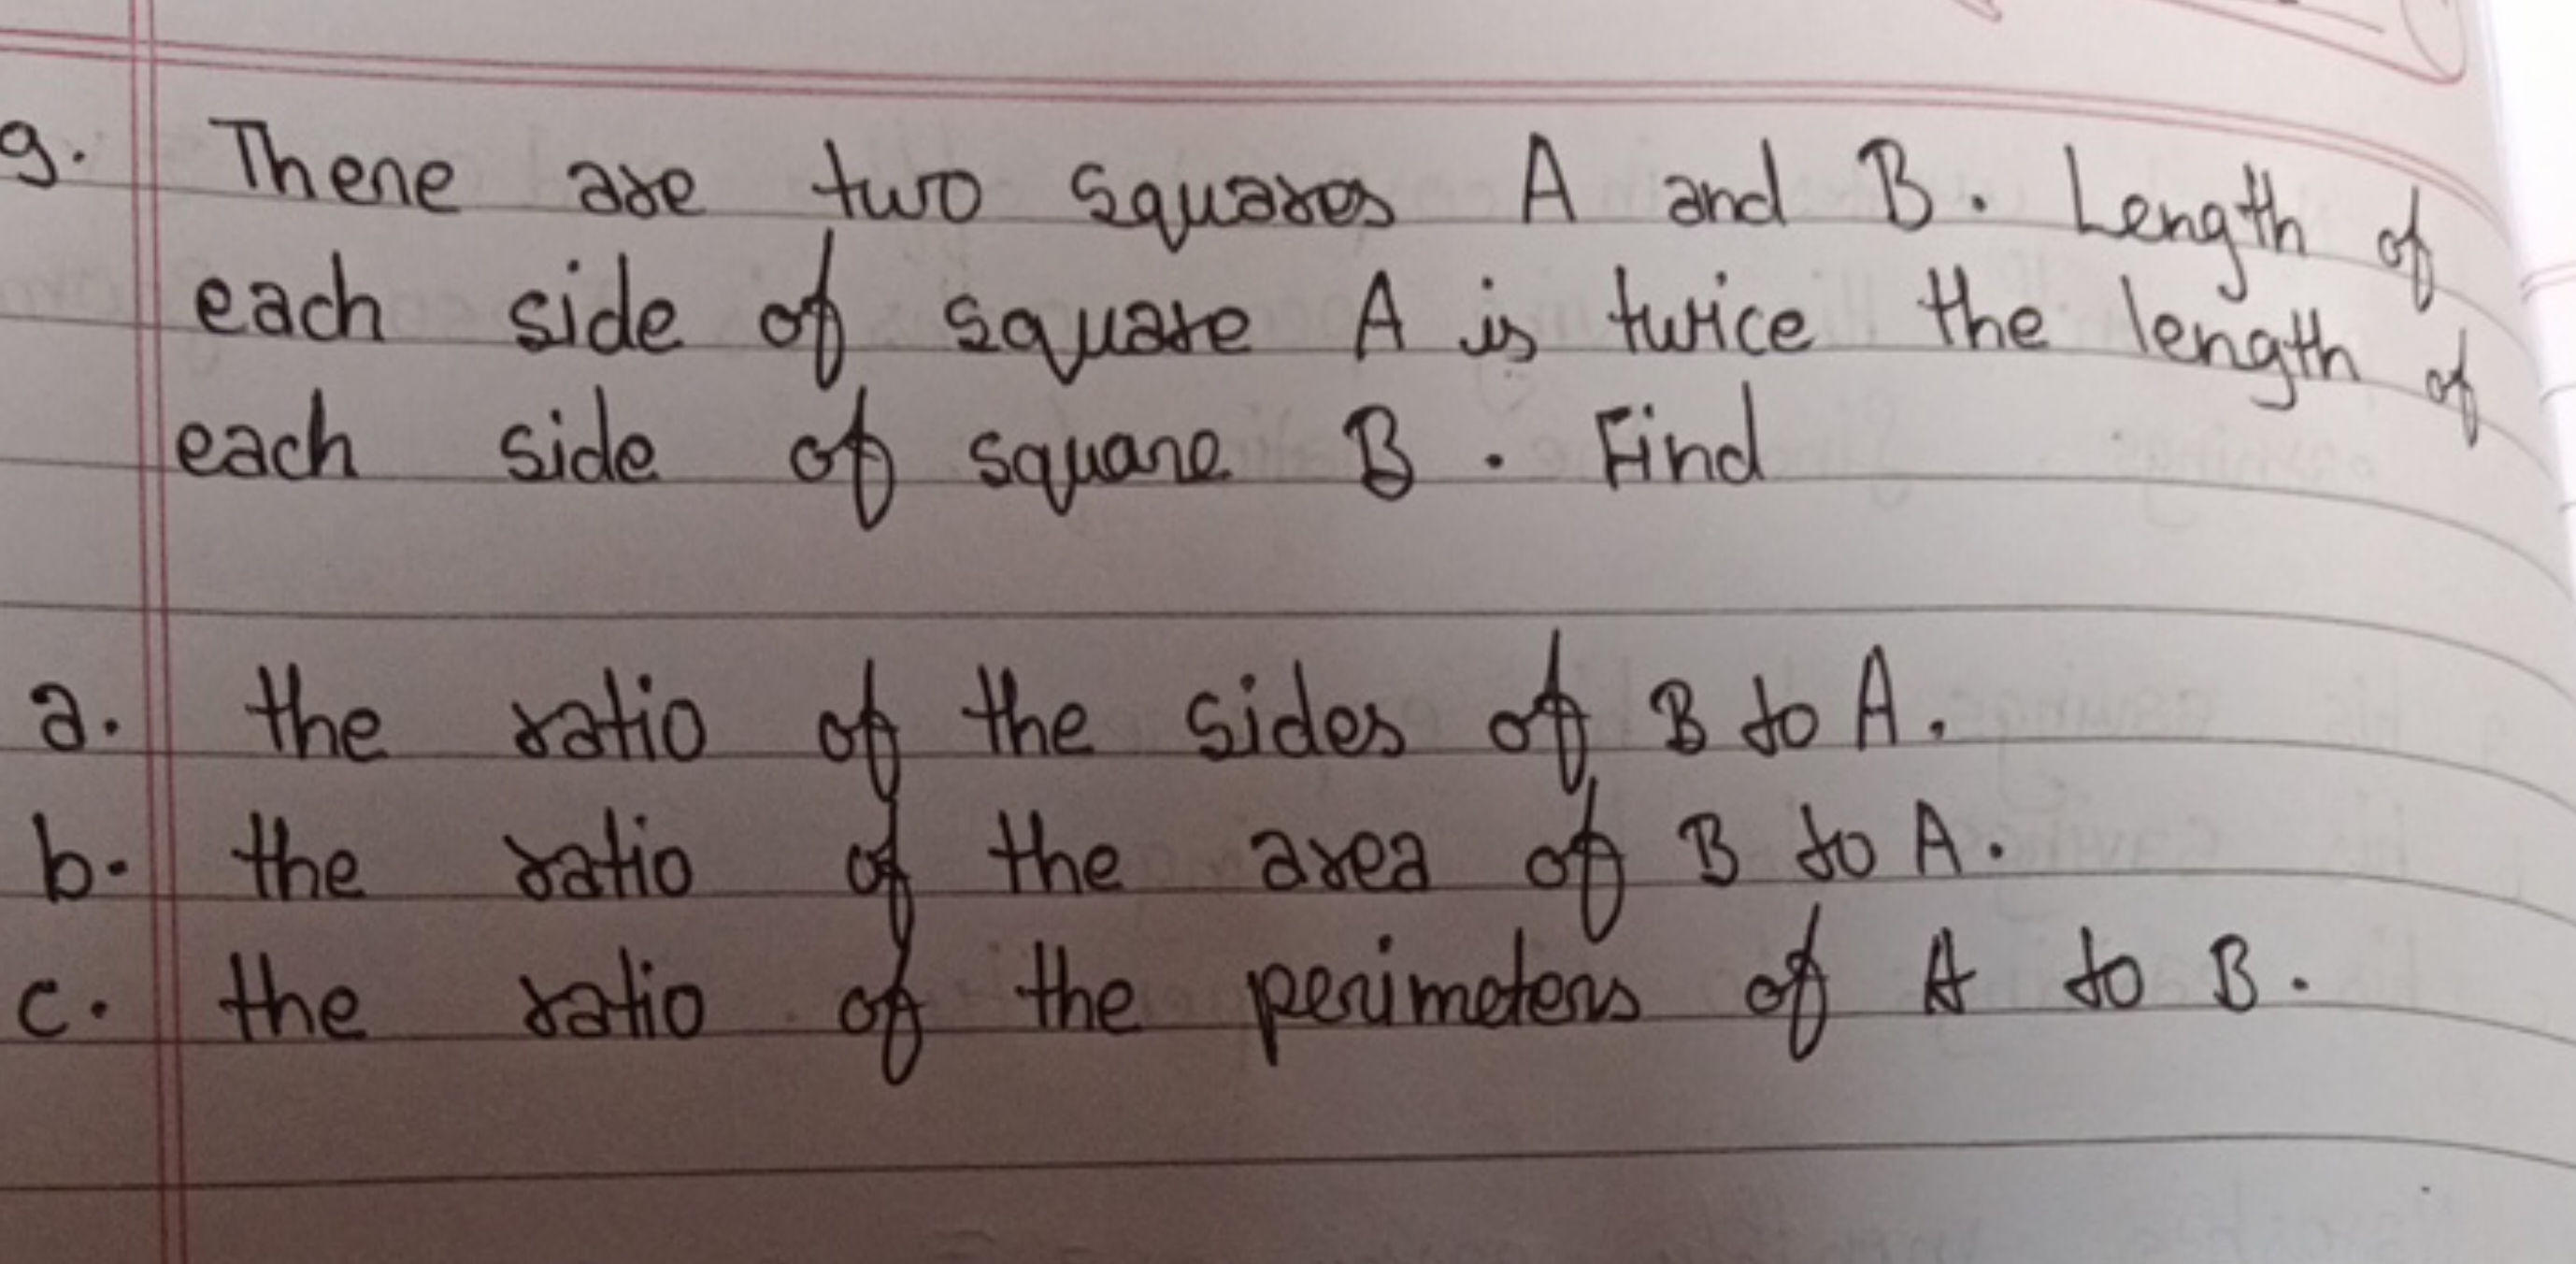 9. There are two squares A and B. Length of
each side of square A is twice the length of
each side of square B. Find
a. the ratio of the sides of B to A.
b. the ratio of the area of B to A.
c. the ratio of the perimeters of A to B.